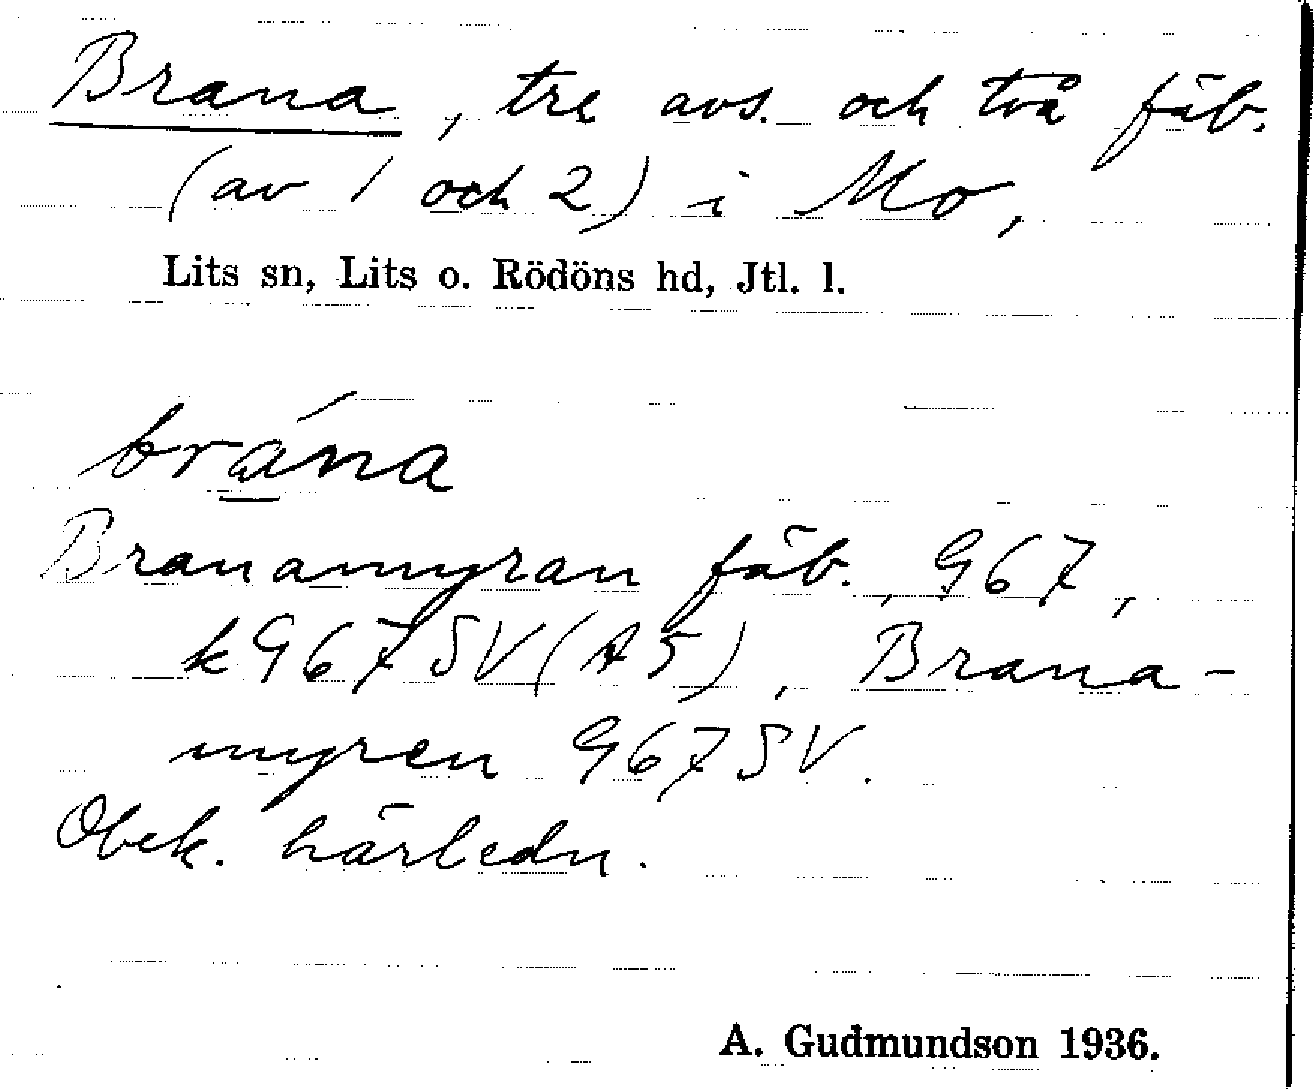 Brana, tre avs. och två fäb.
(av 1 och 2) i Mo,
Lits sn, Lits o. Rödöns hd, Jtl. l.
brána
Branamyran fäb., 967,
k967SV(A5), Brana-
myren 967SV.
Obek. härledn.
A. Gudmundson 1936.